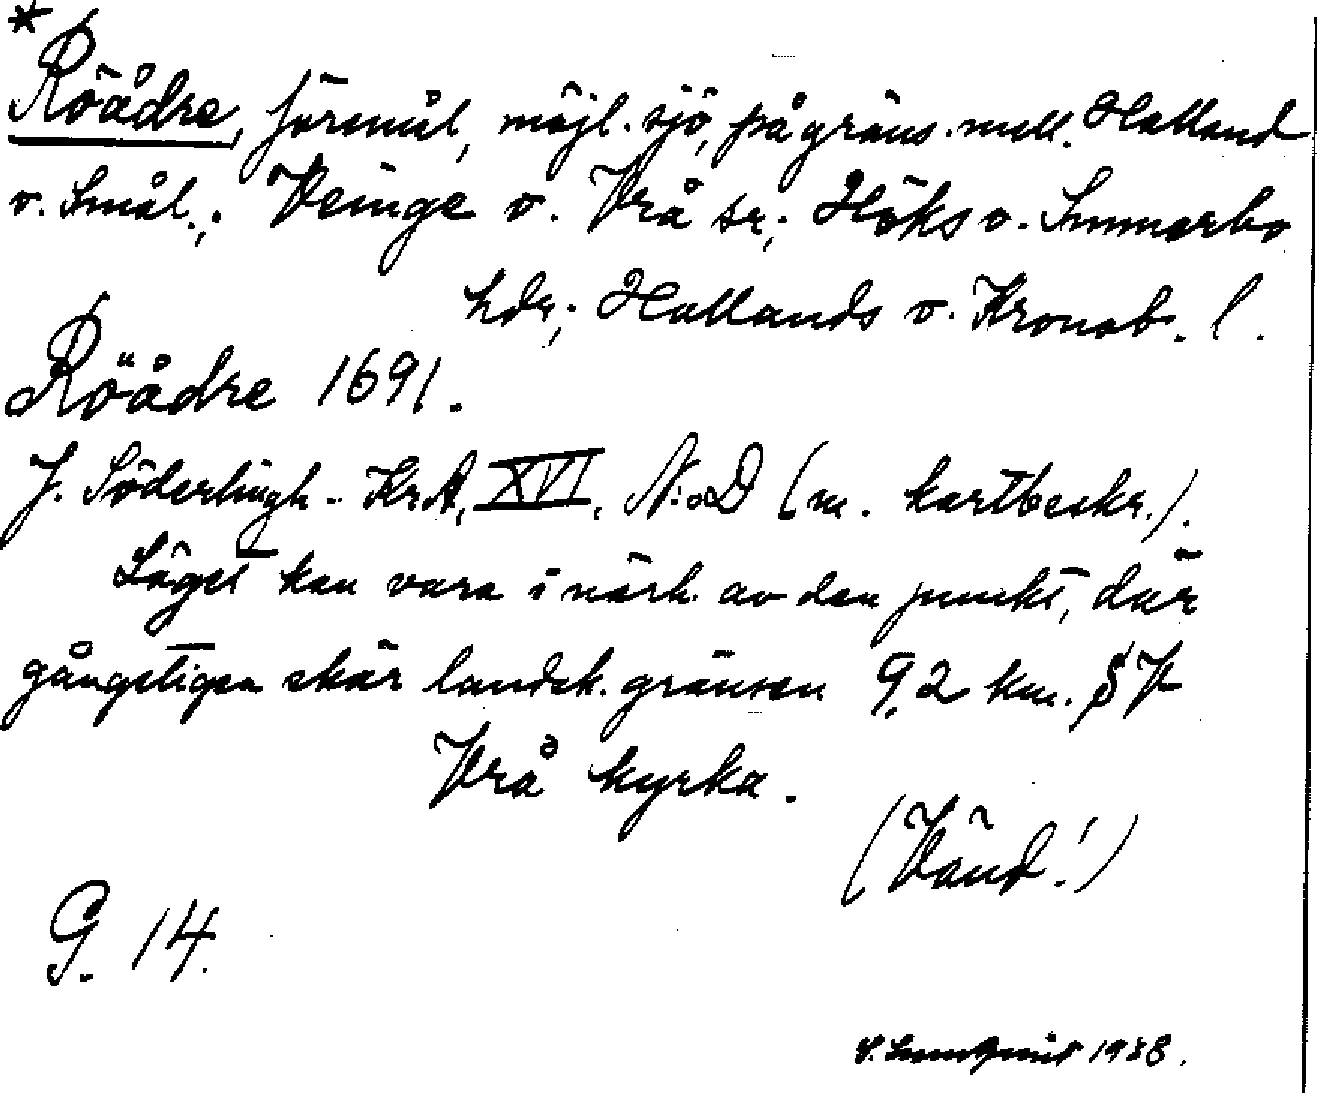 *
Röådre, föremål, möjl. sjö, på gräns. mell. Halland
o. Smål.; Veinge o. Vrå sr; Höks o. Sunnerbo
hdr; Hallands o. Kronob. l.
Röådre 1691.
J. Söderlingh - KrA, XVI, N:o D (m. kartbeskr.).
Läget kan vara i närh. av den punkt, där
gångstigen skär landsk. gränsen 9,2 km. SV
Vrå kyrka.
(Vänd!)
G. 14.